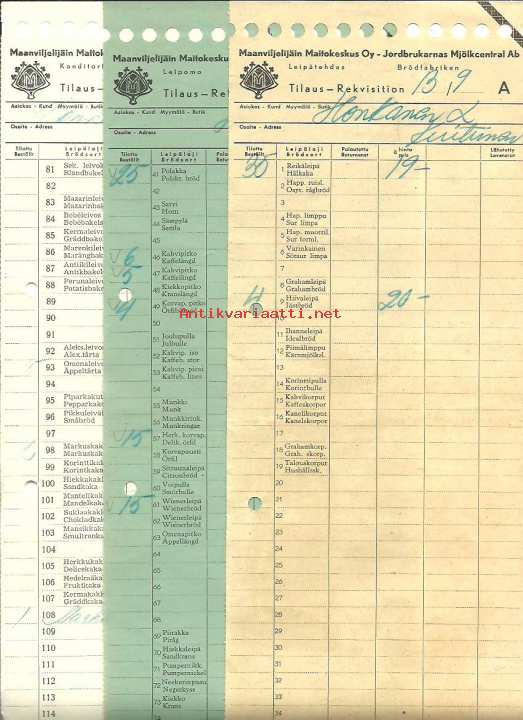 Maanviljelijäin Maitokeskus Oy - Jordbrukarnas Mjölkcentral Ab
Leipätehdas Brödfabriken
Tilaus - Rekvisition 13/9 A
Asiakas - Kund Myymälä - Butik
Honkanen
Osoite - Adress
Tilattu Beställt
Leipälaji Brödsort
Palautettu Returnerat
à hinta pris
Lähetetty Levererat
50 1 Reikäleipä Hålkaka 19-
2 Happ. ruisl.
3
4 Hap. limppu Sur limpa
5 Hap. muottil. Sur forml.
6 Varinkainen Sötsur limpa
7
8 Grahamleipä Grahambröd
4 9 Hiivaleipä Jästbröd 20-
Antikvariaatti.net
11 Ihanneleipä Idealbröd
12 Piimälimppu Kärnmjölksl.
14 Korinttipulla Korintbulle
15 Kahvikorput Kaffeskorpor
16 Kanelikorput Kanelskorpor
17
18 Grahamkorp. Grah. skorp.
19 Talouskorput Hushållssk.
20
21
22
23
24
25
26
27
28
29
30
31
32
33
34
Maanviljelijäin Maitokes
Leipomo
Tilaus - Rek
Asiakas - Kund Myymälä - Butik
Osoite - Adress
Tilattu Beställt
Leipälaji Brödsort
25 41 Polakka Polskt bröd
42
43 Sarvi Horn
44 Sämpylä Semla
45
6 46 Kahvipitko Kaffelängd
5 47 Kahvipitko Kaffelängd
48 Kiekkopitko Kranslängd
4 49 Korvap. pitko Örfilslängd
51 Joulupulla Julbulle
52 Kahvip. iso Kaffeb. stor
53 Kahvip. pieni Kaffeb. liten
54
55 Munkki Munk
56 Munkkirink. Munkringar
15 57 Herk. korvap. Delik. örfil
58 Korvapuusti Örfil
59 Sitruunaleipä Citronbröd
60 Voipulla Smörbulle
15 61 Wienerleipä Wienerbröd
62 Wienerleipä Wienerbröd
63 Omenapitko Äppellängd
64
65
66
67
68
69 Piirakka Piråg
70 Hiekkaleipä Sandkrans
71 Pumpernikk. Pumpernickel
72 Neekerinpuu Negerkyss
73 Kiekko Krans
74
Maanviljelijäin Maitoke
Konditori
Tilaus-
Asiakas - Kund Myymälä - Butik
Osoite - Adress
Tilattu Beställt
Leipälaji Brödsort
81 Sek. leivok Blandbakel
82
83 Mazarinleiv Mazarinbak
84 Bebéleivos Bebébakels
85 Kermaleivo Gräddbak
86 Marenkileiv Marängbak
87 Antiikileiv Antikbakel
88 Perunaleivo Potatisbak
89
90
91
92 Aleks.leivo Alex.tårta
93 Omenaleivo Äppeltårta
94
95 Piparkakut Pepparkak
96 Pikkuleivät Småbröd
97
98 Markuskak Markuskak
99 Korinttikak Korintkaka
100 Hiekkakak Sandkaka
101 Mantelikak Mandelkaka
102 Suklaakak Chokladkak
103 Mansikkak Smultronka
104
105 Herkkukak Delicekaka
106 Hedelmäka Fruktkaka
107 Kermakakk Gräddkaka
1 108
109
110
111
112
113
114